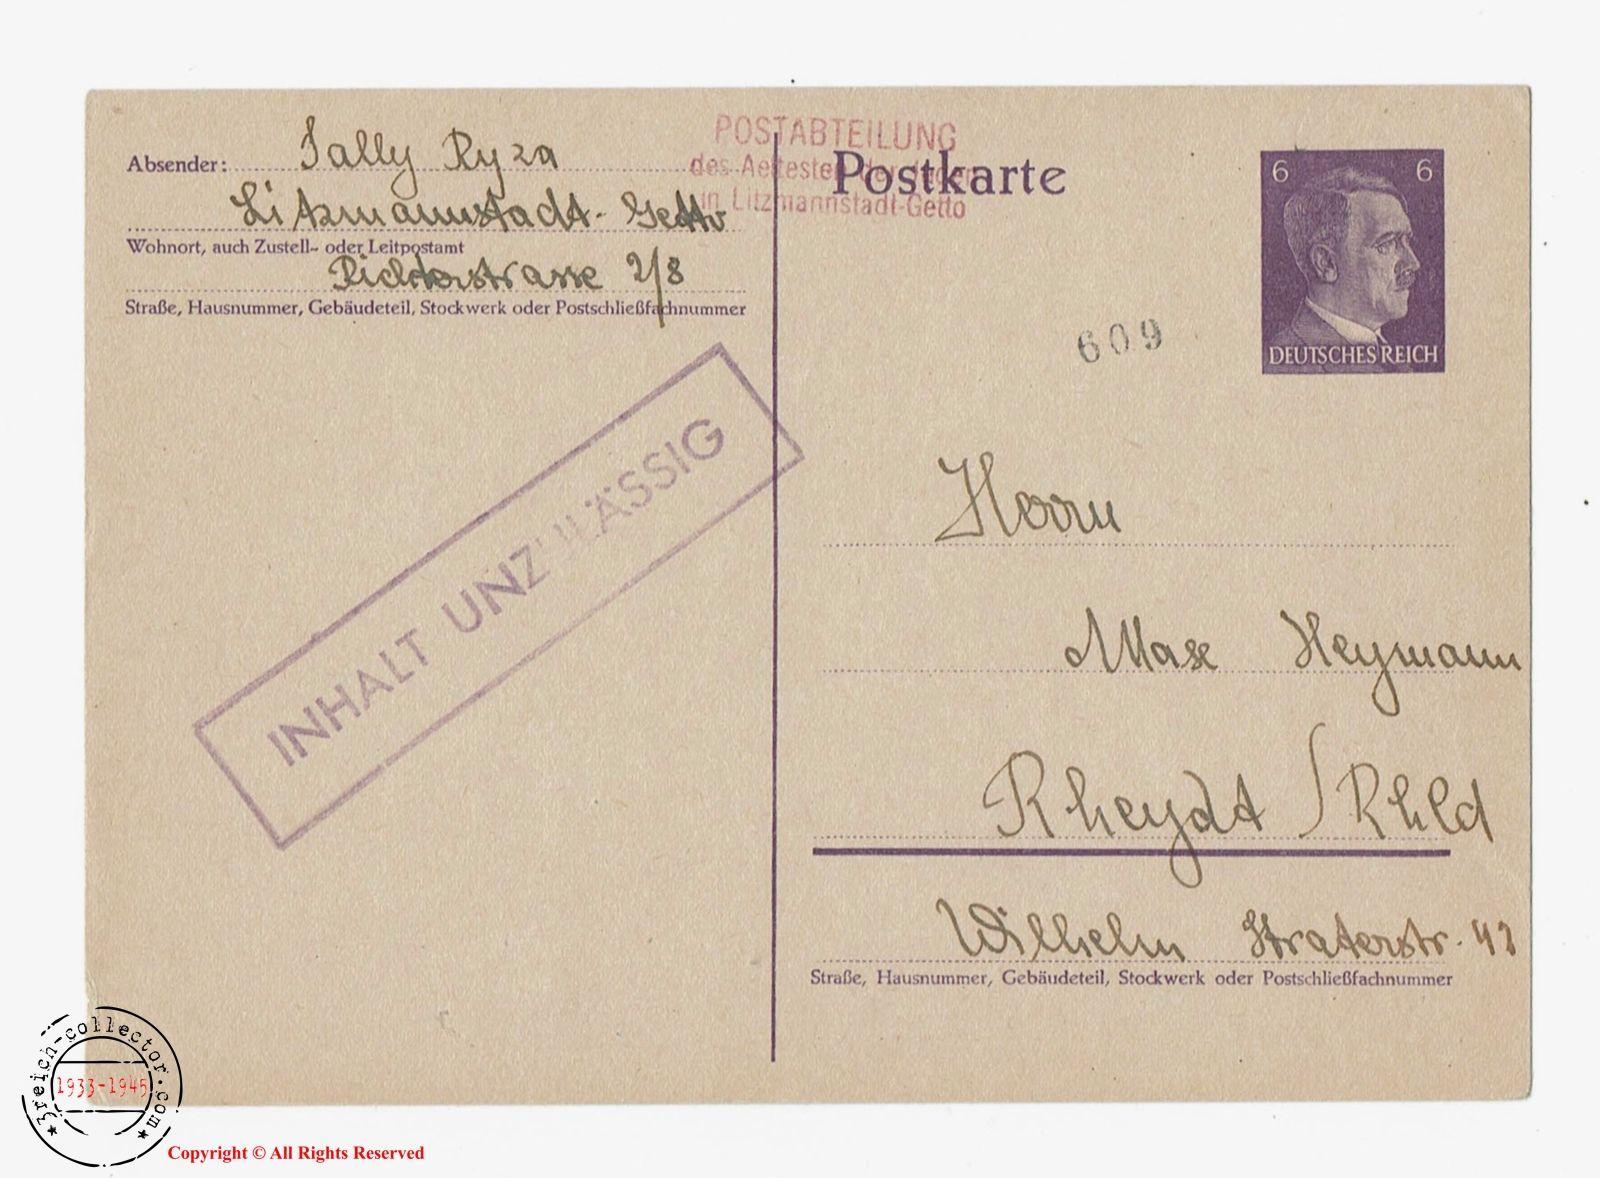 Absender: Sally Ryza
Litzmannstadt-Getto
Wohnort, auch Zustell- oder Leitpostamt
Richterstrasse 2/8
Straße, Hausnummer, Gebäudeteil, Stockwerk oder Postschließfachnummer
POSTABTEILUNG
des Aeltesten der Juden
in Litzmannstadt-Getto
Postkarte
6 6
DEUTSCHES REICH
609
INHALT UNZULÄSSIG
Herrn
Max Heymann
Rheydt / Rhld
Wilhelm Straterstr.
Straße, Hausnummer, Gebäudeteil, Stockwerk oder Postschließfachnummer
3reich-collector.com
1933-1945
Copyright © All Rights Reserved